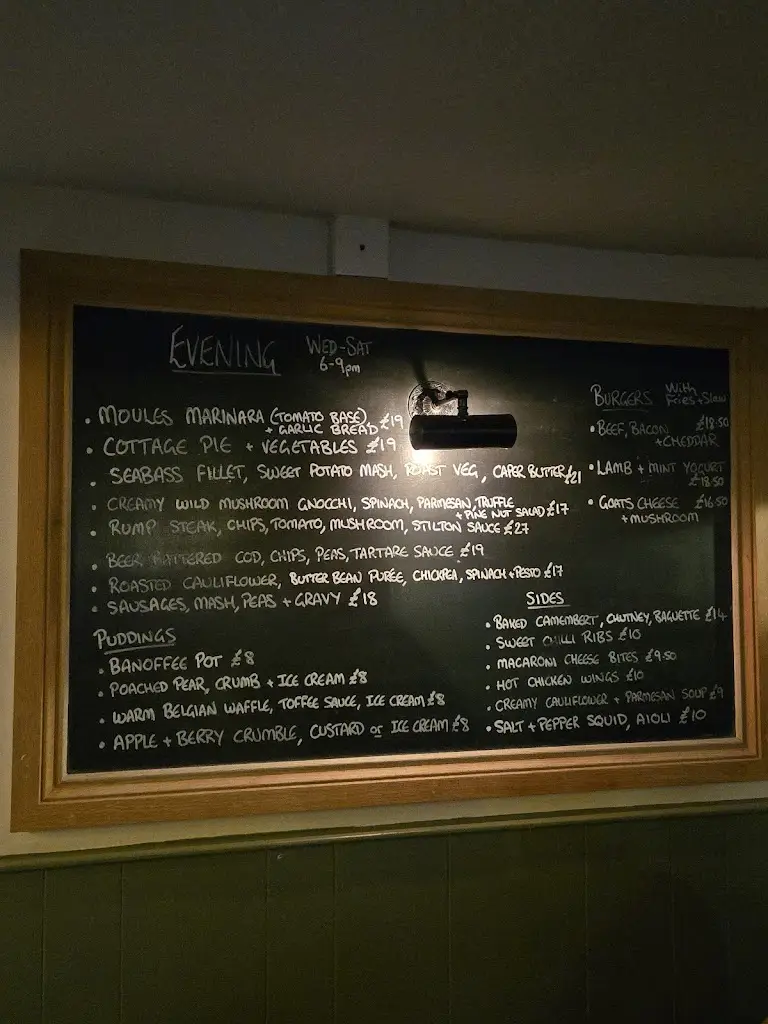 EVENING WED-SAT
6-9pm
• MOULES MARINARA (TOMATO BASE)
+ GARLIC BREAD £19
• COTTAGE PIE + VEGETABLES £19
• SEABASS FILLET, SWEET POTATO MASH, ROAST VEG, CAPER BUTTER £21
• CREAMY WILD MUSHROOM GNOCCHI, SPINACH, PARMESAN, TRUFFLE
+ PINE NUT SALAD £17
• RUMP STEAK, CHIPS, TOMATO, MUSHROOM, STILTON SAUCE £27
• BEER BATTERED COD, CHIPS, PEAS, TARTARE SAUCE £19
• ROASTED CAULIFLOWER, BUTTER BEAN PURÉE, CHICKPEA, SPINACH + PESTO £17
• SAUSAGES, MASH, PEAS + GRAVY £18
PUDDINGS
• BANOFFEE POT £8
• POACHED PEAR, CRUMB + ICE CREAM £8
• WARM BELGIAN WAFFLE, TOFFEE SAUCE, ICE CREAM £8
• APPLE + BERRY CRUMBLE, CUSTARD or ICE CREAM £8
BURGERS With
Fries + Slaw
• BEEF, BACON £18.50
+ CHEDDAR
• LAMB + MINT YOGURT
£18.50
• GOATS CHEESE £16.50
+ MUSHROOM
SIDES
• BAKED CAMEMBERT, CHUTNEY, BAGUETTE £14
• SWEET CHILLI RIBS £10
• MACARONI CHEESE BITES £9.50
• HOT CHICKEN WINGS £10
• CREAMY CAULIFLOWER + PARMESAN SOUP £9
• SALT + PEPPER SQUID, AIOLI £10